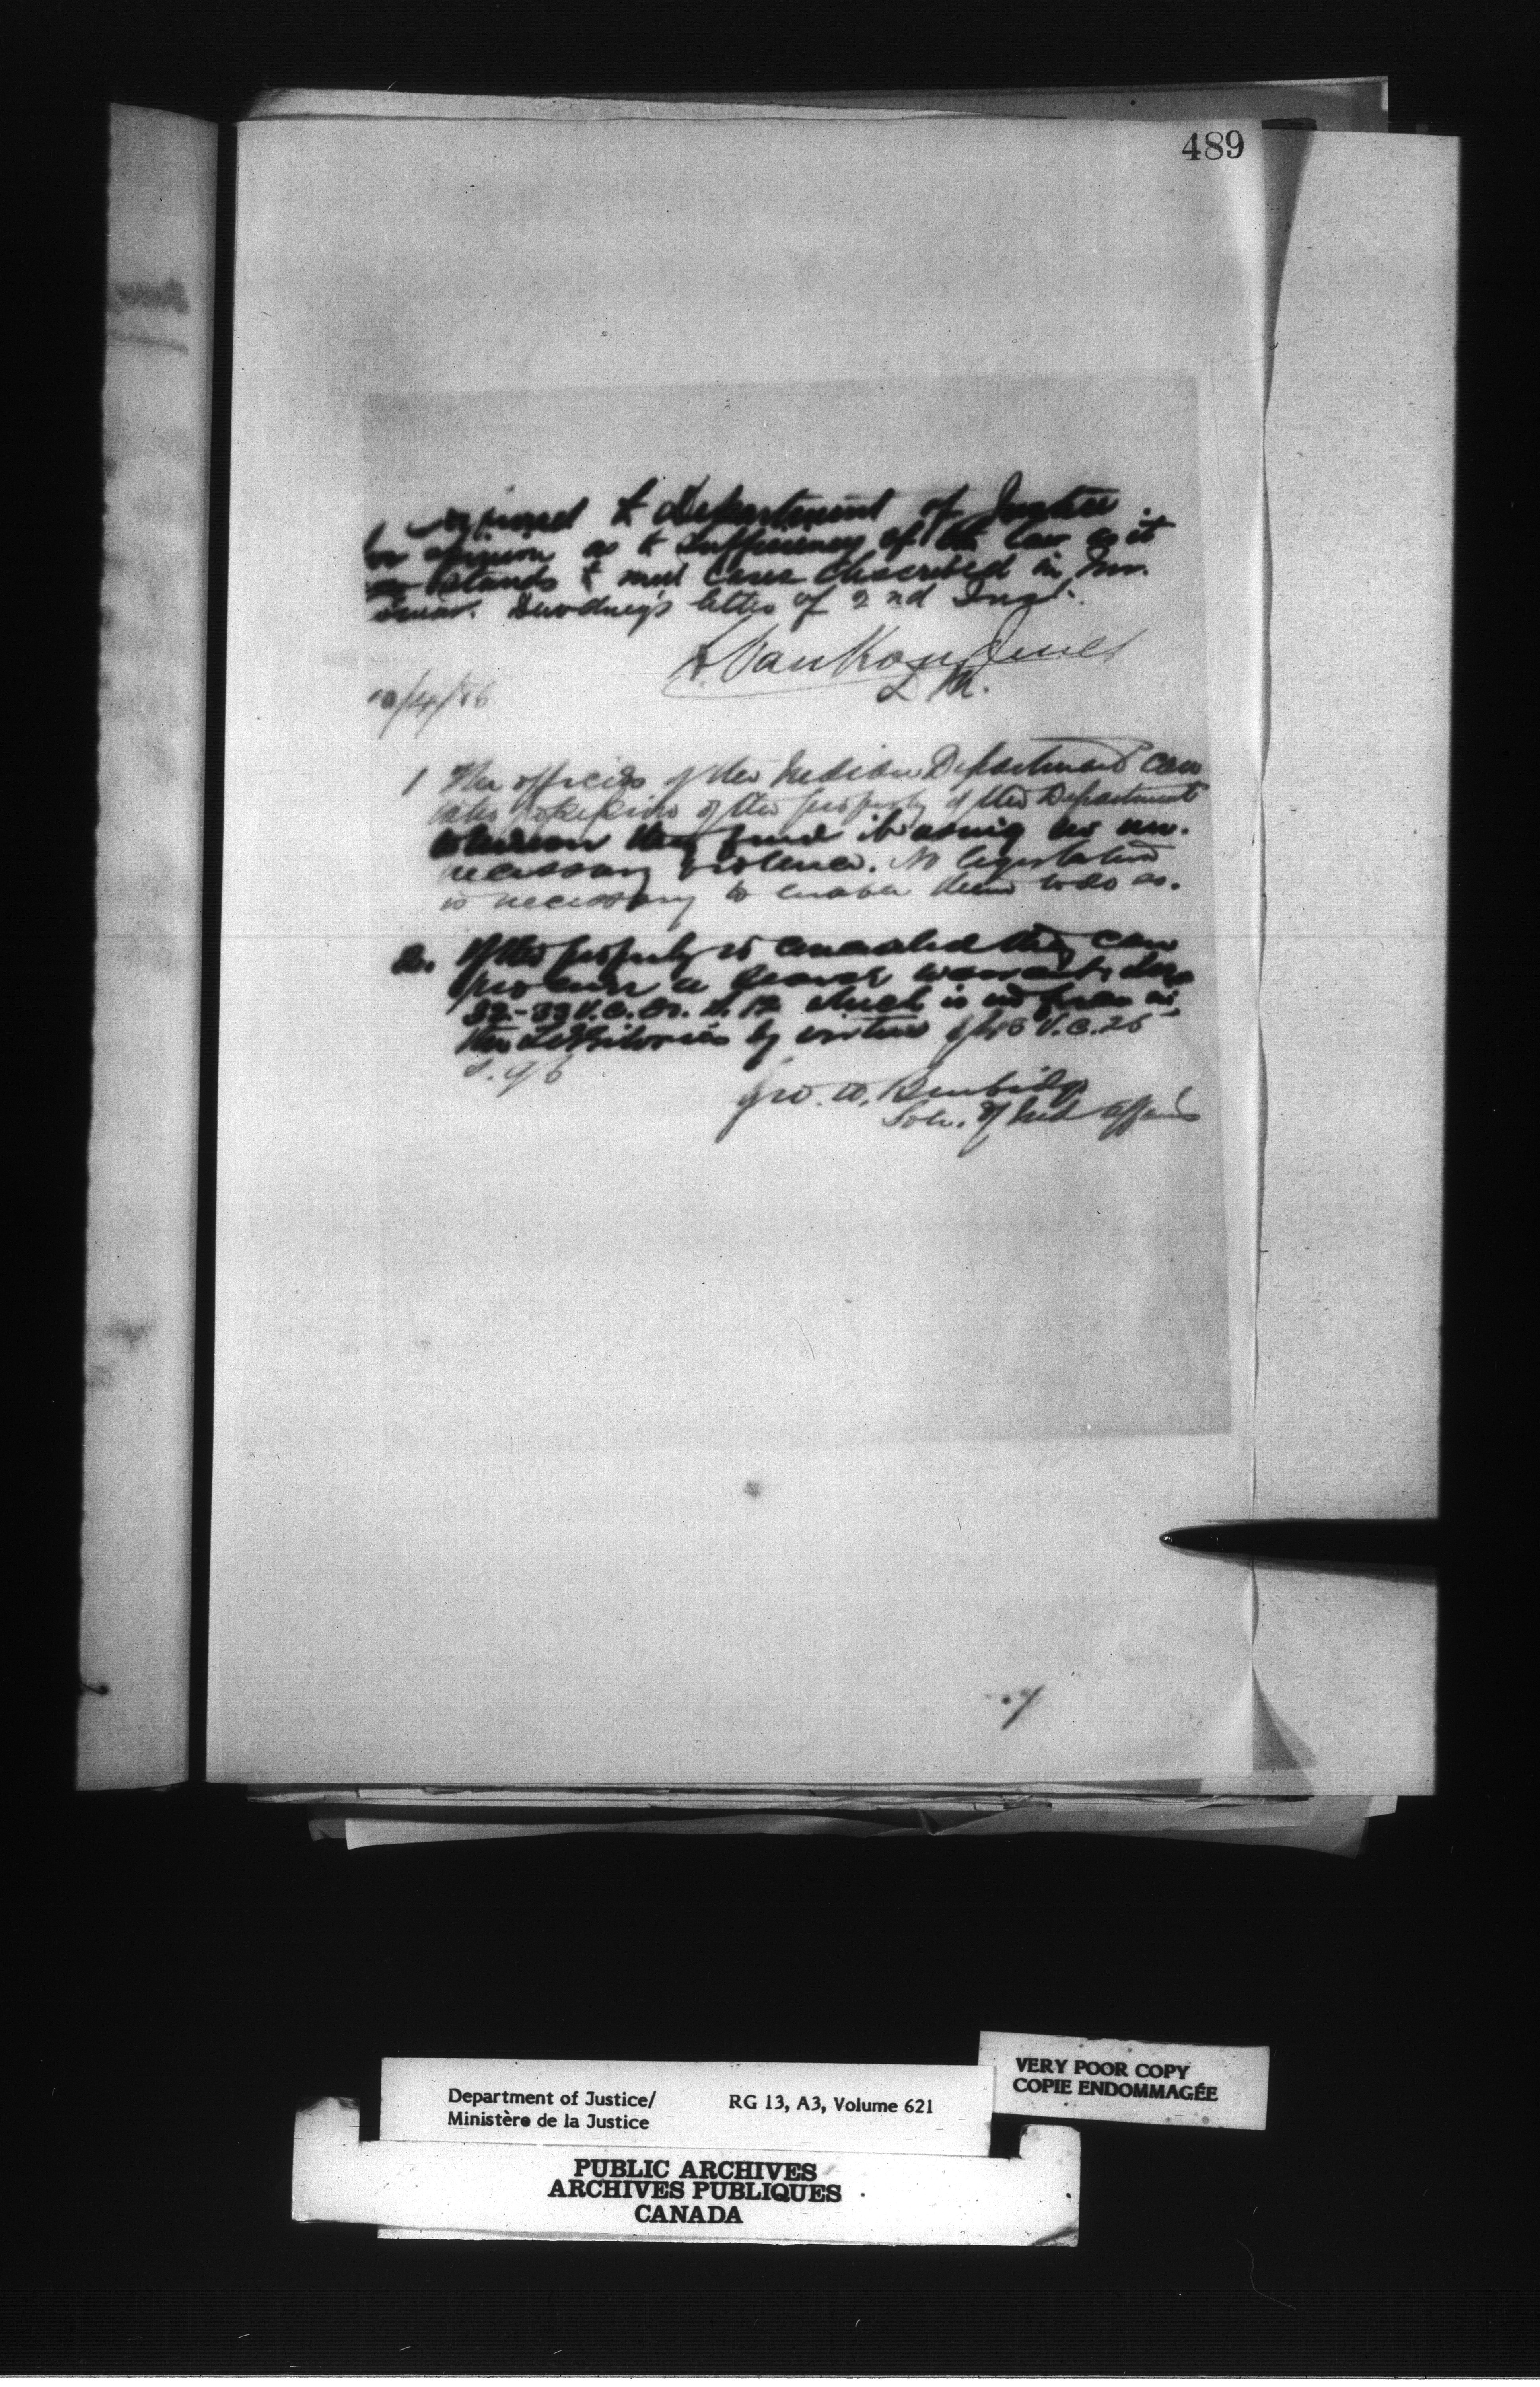 489
Department of Justice
for opinion as to sufficiency of the law as it
stands to meet cases described in
Dewdney's letter of 2nd Inst.
L. VanKoughnet
/4/86
1 The officers of the Indian Department can
take possession of the property of the Department
wherever they find it using no un-
necessary violence. No legislation
is necessary to enable them to do so.
2. If the property is concealed they can
procure a search warrant
32-33 V. c. s. 12 which is in force in
the Territories by virtue of V. c. 25
s. 96
Geo. W. Burbidge
Solr. of Ind Affairs
VERY POOR COPY
COPIE ENDOMMAGÉE
Department of Justice/ RG 13, A3, Volume 621
Ministère de la Justice
PUBLIC ARCHIVES
ARCHIVES PUBLIQUES
CANADA